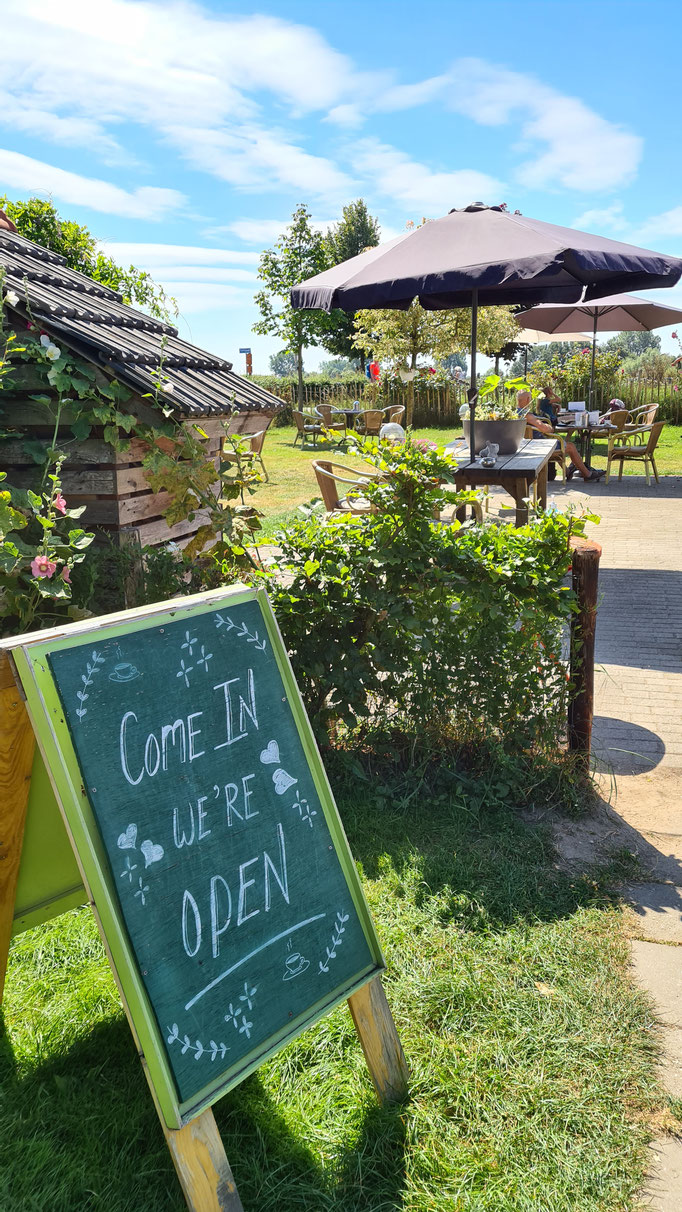 Come In
We're
Open